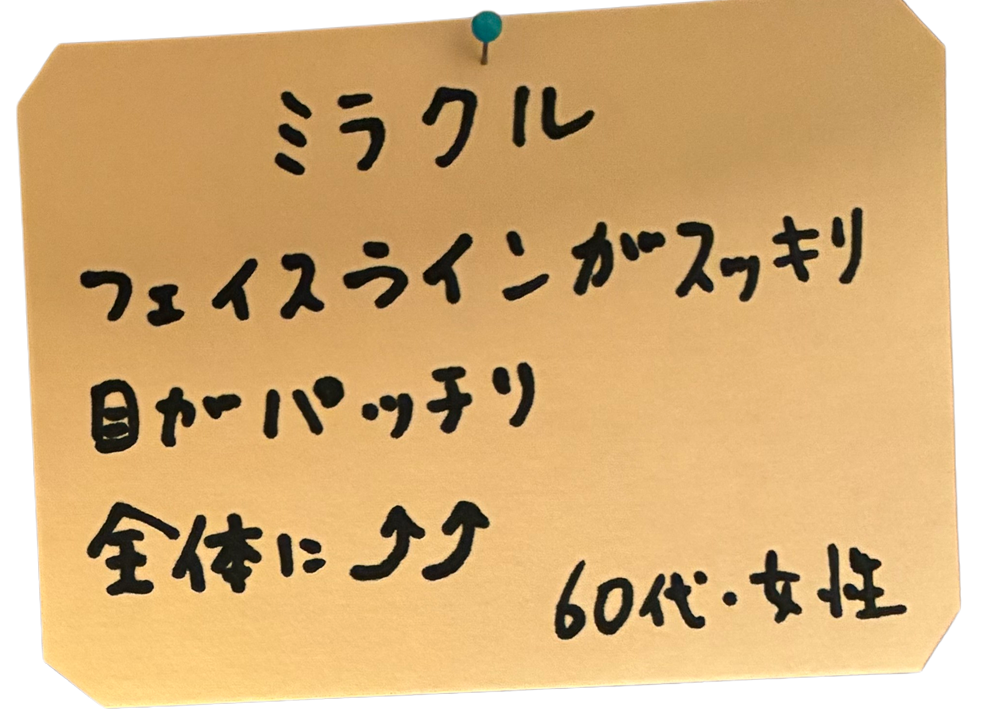 ミラクル
フェイスラインがスッキリ
目がパッチリ
全体に⤴⤴
60代・女性